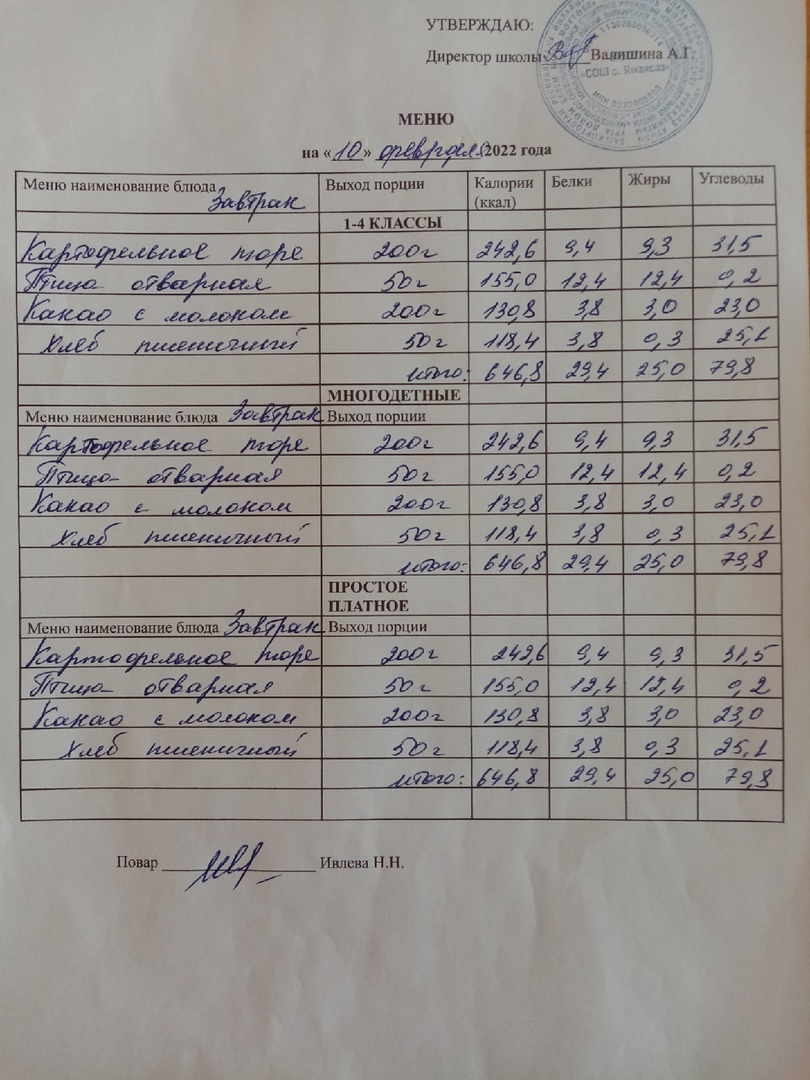 УТВЕРЖДАЮ:
Директор школы Валишина А.Г.
«СОШ с. Ямансаз»
МЕНЮ
на «10» февраля 2022 года
Меню наименование блюда Завтрак Выход порции Калории (ккал) Белки Жиры Углеводы
1-4 КЛАССЫ
Картофельное пюре 200г 242,6 9,4 9,3 31,5
Птица отварная 50г 155,0 12,4 12,4 0,2
Какао с молоком 200г 130,8 3,8 3,0 23,0
Хлеб пшеничный 50г 118,4 3,8 0,3 25,1
итого: 646,8 29,4 25,0 79,8
МНОГОДЕТНЫЕ
Меню наименование блюда Завтрак Выход порции
Картофельное пюре 200г 242,6 9,4 9,3 31,5
Птица отварная 50г 155,0 12,4 12,4 0,2
Какао с молоком 200г 130,8 3,8 3,0 23,0
Хлеб пшеничный 50г 118,4 3,8 0,3 25,1
итого: 646,8 29,4 25,0 79,8
ПРОСТОЕ
ПЛАТНОЕ
Меню наименование блюда Завтрак Выход порции
Картофельное пюре 200г 242,6 9,4 9,3 31,5
Птица отварная 50г 155,0 12,4 12,4 0,2
Какао с молоком 200г 130,8 3,8 3,0 23,0
Хлеб пшеничный 50г 118,4 3,8 0,3 25,1
итого: 646,8 29,4 25,0 79,8
Повар Ивлева Н.Н.